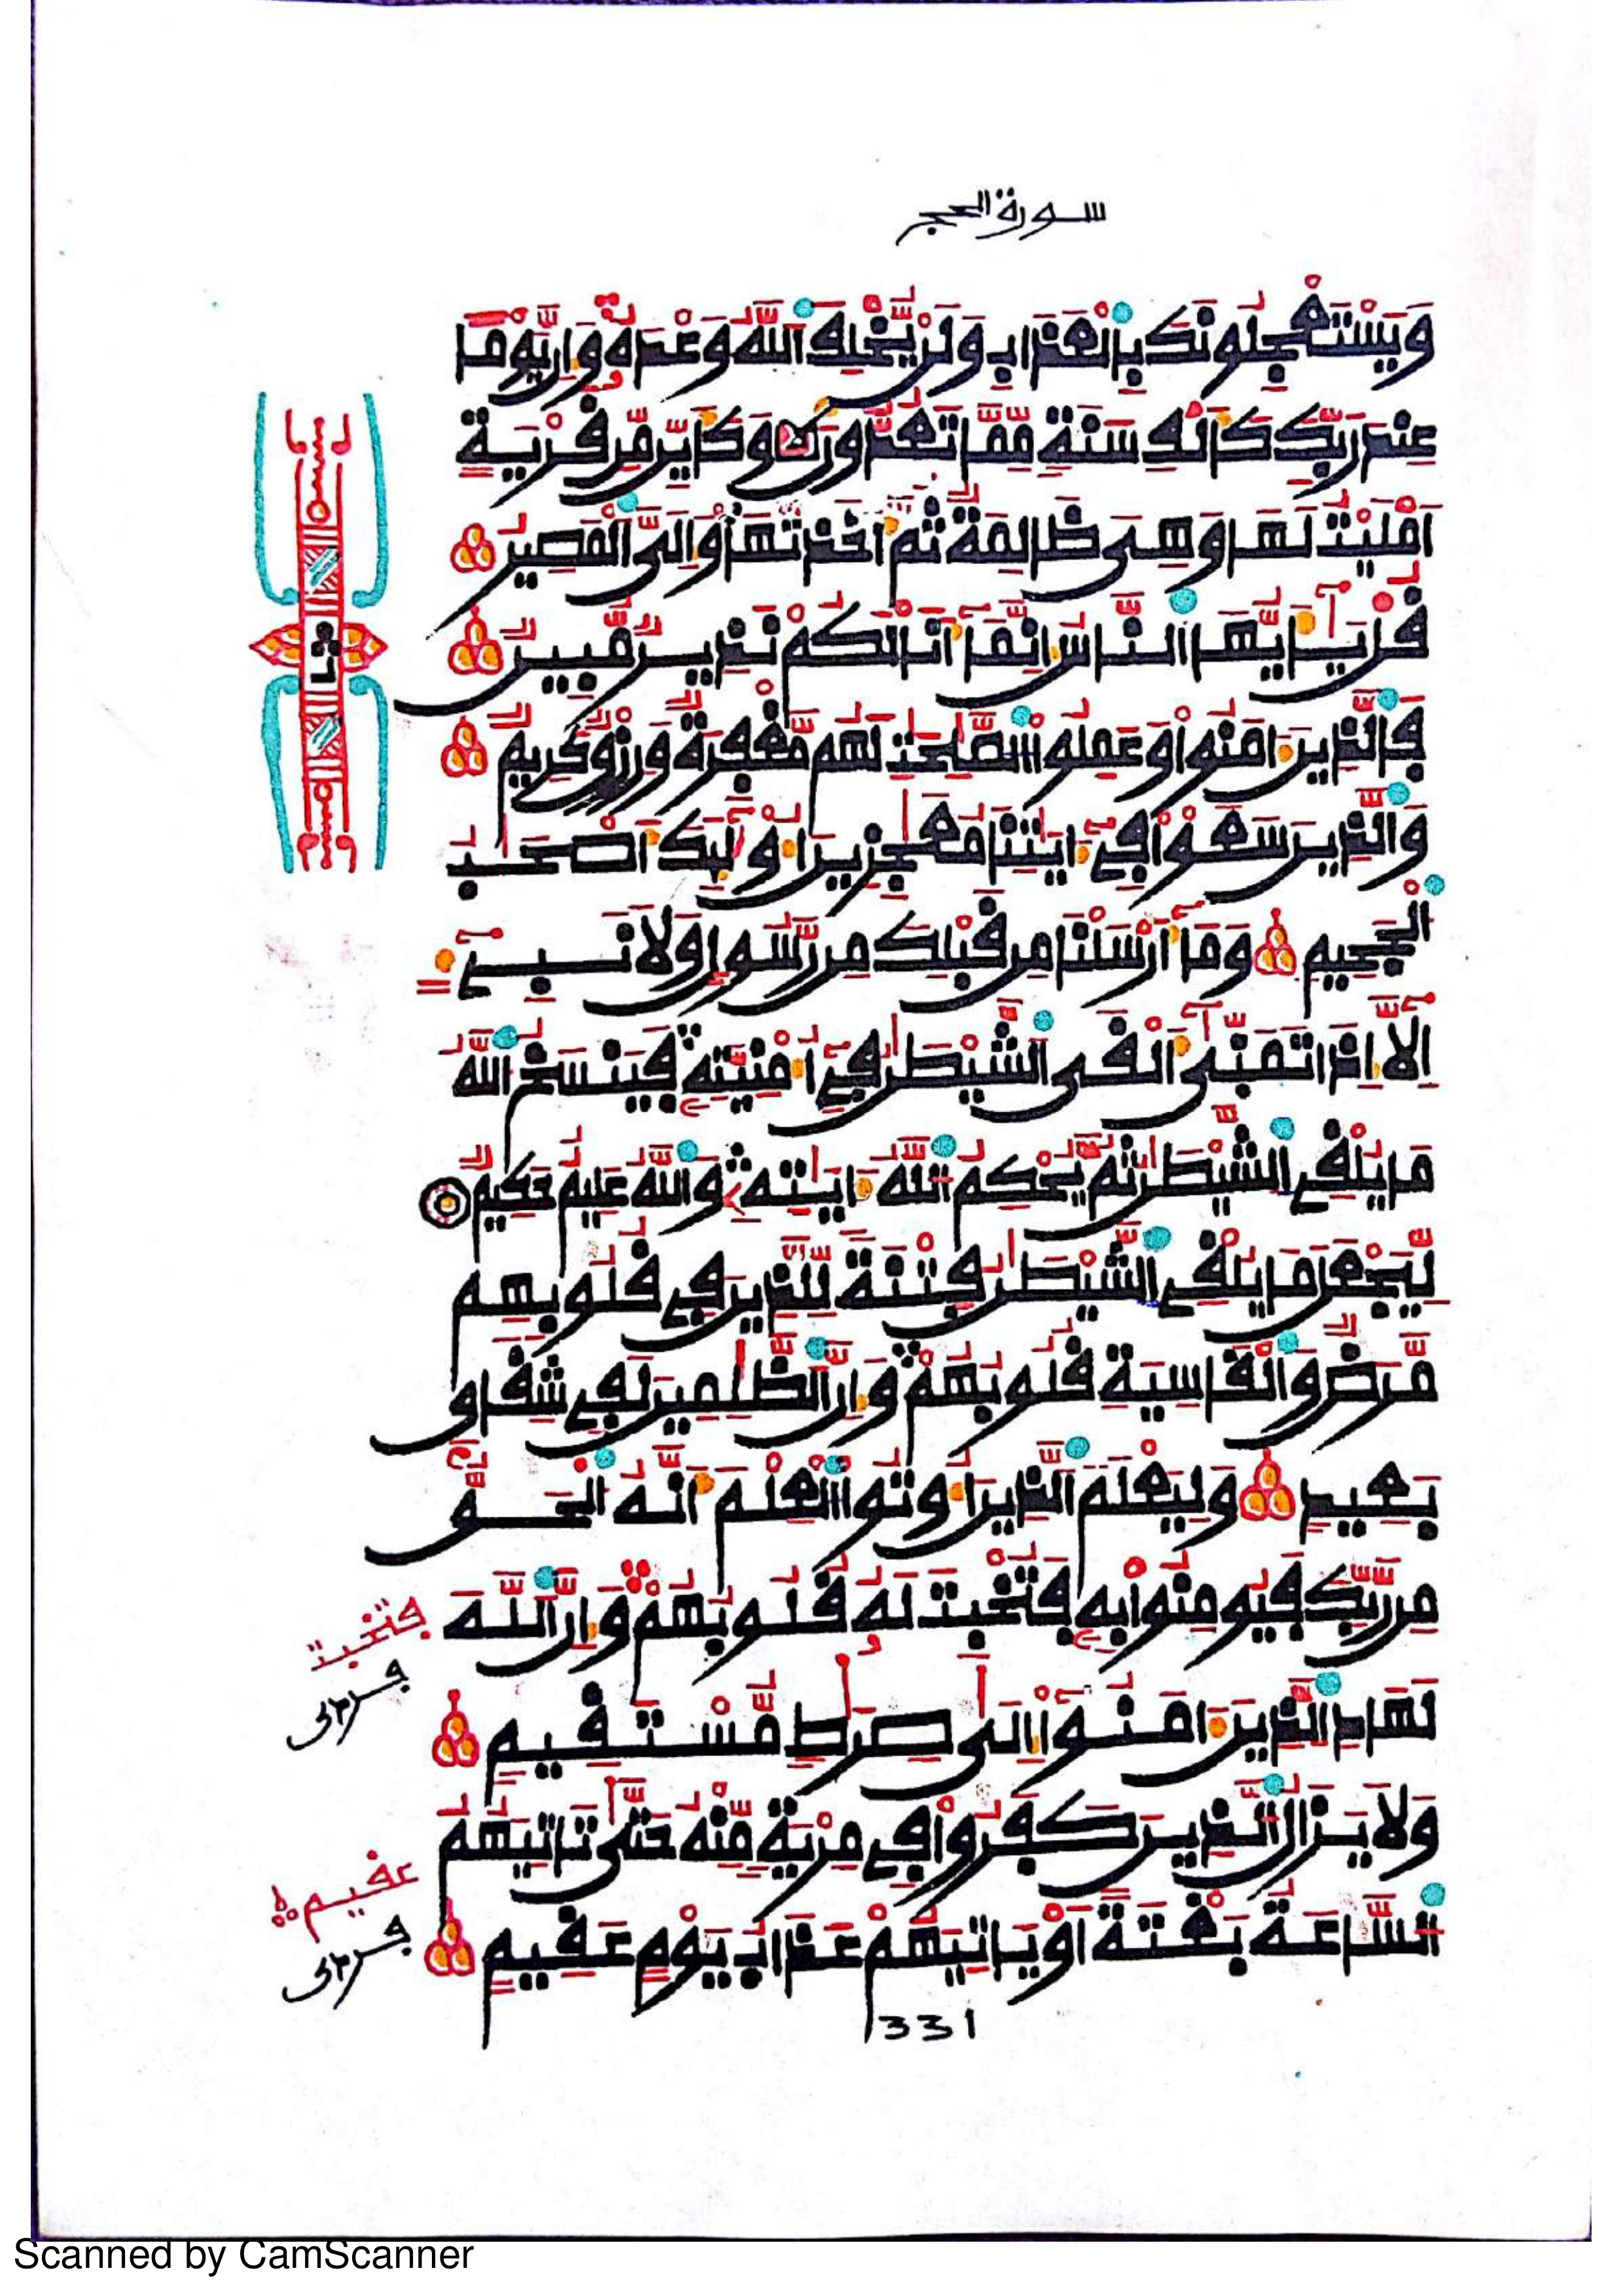 سورة الحج
وَيَسْتَعْجِلُونَكَ بِالْعَذَابِ وَلَنْ يُّخْلِفَ اَللَّهُ وَعْدَهُ وَإِنَّ يَوْماً
عِندَ رَبِّكَ كَأَلْفِ سَنَةٍ مِّمَّا تَعُدُّونَ وَكَأَيِّن مِّن قَرْيَةٍ
اَمْلَيْتُ لَهَا وَهِيَ ظَالِمَةٌ ثُمَّ أَخَذتُّهَا وَإِلَيَّ اَلْمَصِيرُ
قُلْ يَٰأَيُّهَا اَلنَّاسُ إِنَّمَا أَنَا لَكُمْ نَذِيرٌ مُّبِينٌ
فَالذِينَ ءَامَنُواْ وَعَمِلُواْ اُلصَّٰلِحَٰتِ لَهُم مَّغْفِرَةٌ وَرِزْقٌ كَرِيمٌ
وَالذِينَ سَعَوْاْ فِي ءَايَٰتِنَا مُعَٰجِزِينَ أُوْلَٰئِكَ أَصْحَٰبُ
اُلْجَحِيمِ وَمَا أَرْسَلْنَا مِن قَبْلِكَ مِن رَّسُولٍ وَلَا نَبِيٓءٍ
اِلَّا إِذَا تَمَنَّىٰ أَلْقَى اَلشَّيْطَٰنُ فِي أُمْنِيَّتِهِ فَيَنسَخُ اُللَّهُ
مَا يُلْقِي اِلشَّيْطَٰنُ ثُمَّ يُحْكِمُ اُللَّهُ ءَايَٰتِهِ وَاللَّهُ عَلِيمٌ حَكِيمٌ
لِّيَجْعَلَ مَا يُلْقِي اِلشَّيْطَٰنُ فِتْنَةً لِّلذِينَ فِي قُلُوبِهِم
مَّرَضٌ وَالْقَاسِيَةِ قُلُوبُهُمْ وَإِنَّ اَلظَّٰلِمِينَ لَفِي شِقَاقٍ
بَعِيدٍ وَلِيَعْلَمَ اَلذِينَ أُوتُواْ اُلْعِلْمَ أَنَّهُ اُلْحَقُّ
مِن رَّبِّكَ فَيُومِنُواْ بِهِ فَتُخْبِتَ لَهُ قُلُوبُهُمْ وَإِنَّ اَللَّهَ
لَهَادِ اِلذِينَ ءَامَنُواْ إِلَىٰ صِرَٰطٍ مُّسْتَقِيمٍ
وَلَا يَزَالُ اُلذِينَ كَفَرُواْ فِي مِرْيَةٍ مِّنْهُ حَتَّىٰ تَاتِيَهُمُ
اُلسَّاعَةُ بَغْتَةً اَوْ يَاتِيَهُمْ عَذَابُ يَوْمٍ عَقِيمٍ
فتخبت
عقيم
331
Scanned by CamScanner